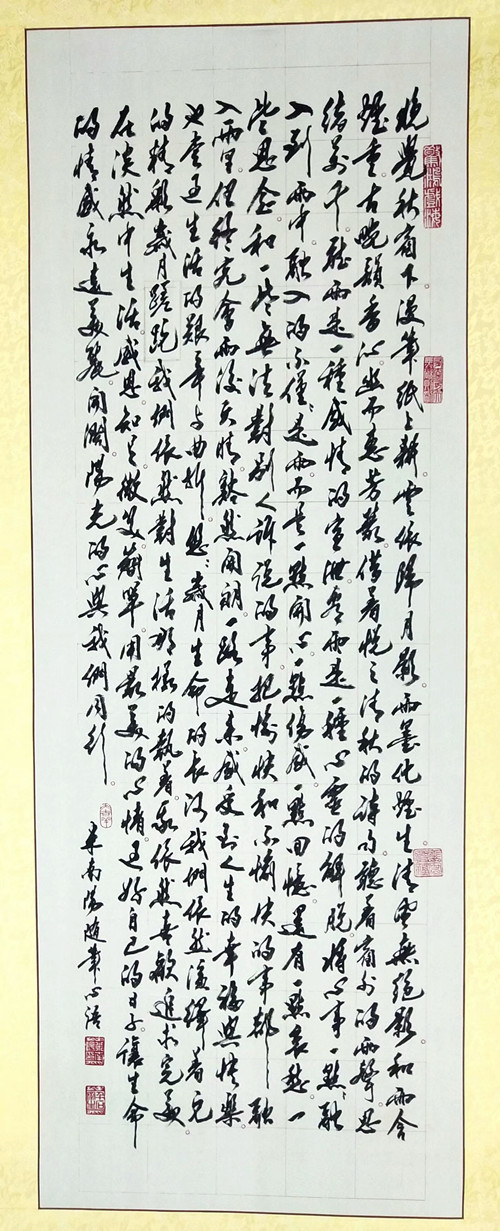 晚觉秋窗下漫笔纸上耕云依归月影雨墨化烟生清曲无绝影和雨含
烟重古晚韵香心幽不惹芳丛伴着悦之清秋的诗句听着窗外的雨声思
绪万千听雨是一种感情的宣泄看雨是一种心灵的解脱将心事一点点融
入到雨中融入的不仅仅是雨而是一点开心一点伤感一点回忆还有一点哀愁一
些思念和一些无法对别人诉说的事把愉快和不愉快的事都一一融
入雨里但终究会雨后天晴豁然开朗一路走来感受到人生的幸福与快乐
也走过生活的艰辛与曲折悠悠岁月生命的长河我们依然演绎着它
的精彩岁月蹉跎我们依然对生活那样的执着我依然喜欢追求完美
在淡然中生活感恩知足微笑简单用最美的心情过好自己的日子让生命
的情感永远美丽开阔阳光的心与我们同行
南阳随笔心语